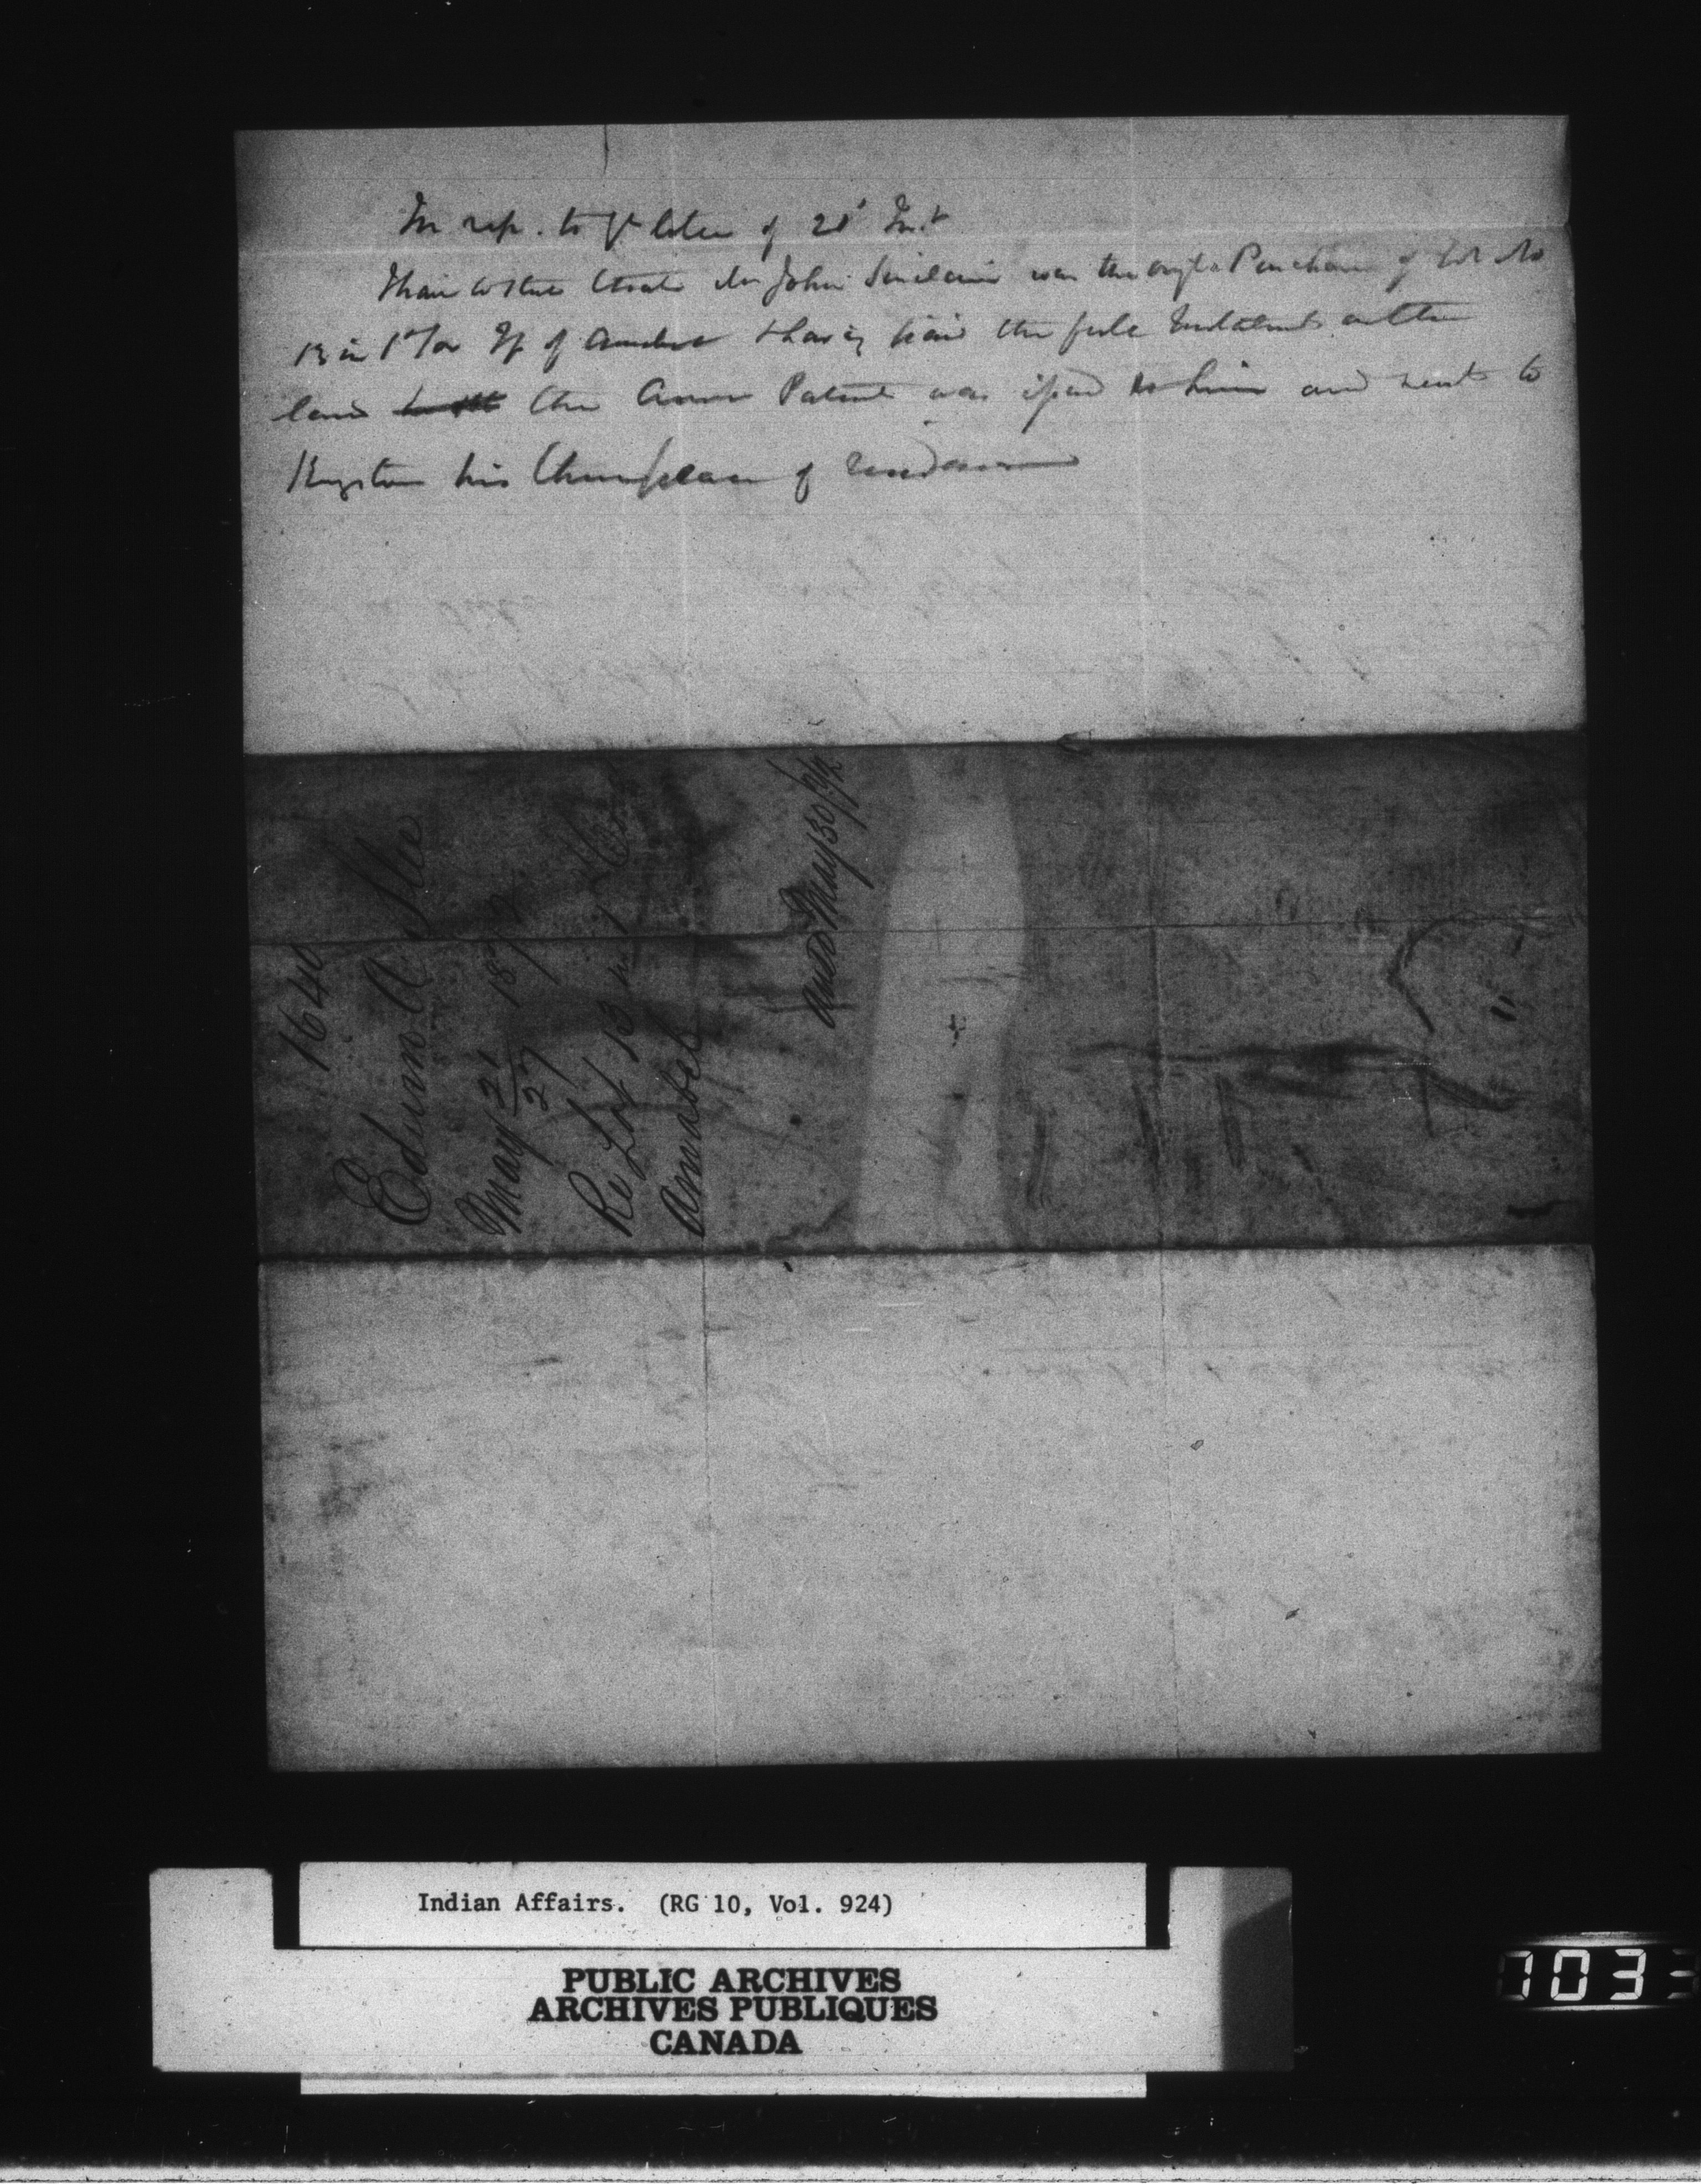 In rep. to yr letter of 21st Inst
I have to state that Mr John Sinclair was the Purchaser of Lot No
13 in 1st Con Tp of Amabel & having paid the full Instalments on the
land the Patent was issued to him and sent to
Kingston his then place of
1640
Edwin A
May 21/27 1872
Re Lot 13 in 1 Con
Amabel
ansd May 30/72
Indian Affairs. (RG 10, Vol. 924)
PUBLIC ARCHIVES
ARCHIVES PUBLIQUES
CANADA
1033